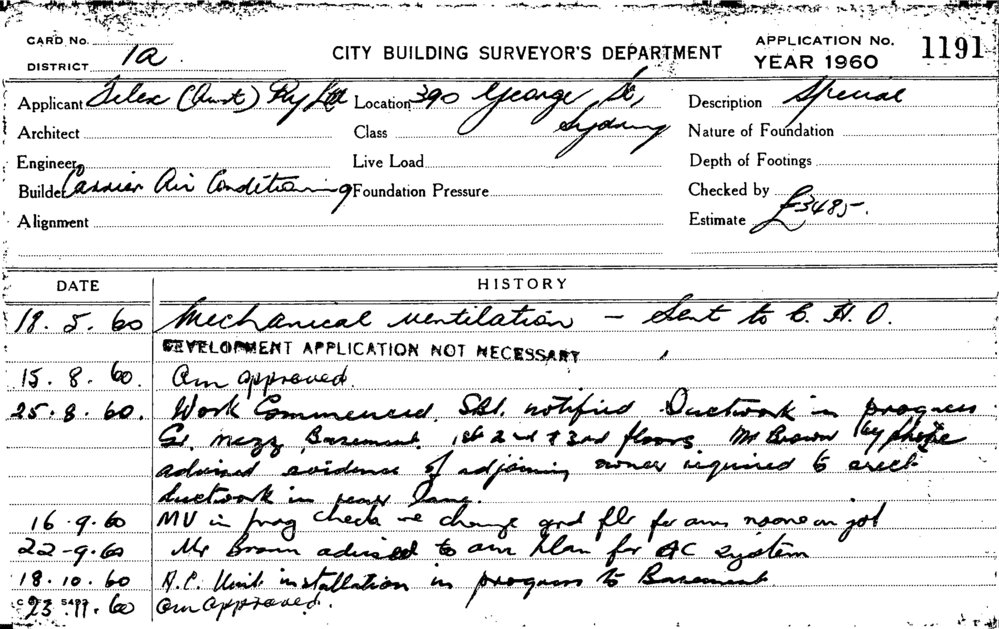 CARD No.
DISTRICT 1a.
CITY BUILDING SURVEYOR'S DEPARTMENT
APPLICATION No. 1191
YEAR 1960
Applicant (Aust) Pty Ltd
Location 390 George St,
Sydney
Description Special
Architect
Class
Nature of Foundation
Engineer
Live Load
Depth of Footings
Builder Carrier Air Conditioning
Foundation Pressure
Checked by
Alignment
Estimate £3485-.
DATE
HISTORY
18. 5. 60 Mechanical ventilation - Sent to C. H. O.
DEVELOPMENT APPLICATION NOT NECESSARY
15. 8. 60. Am approved.
25. 8. 60. Work Commenced. notified Ductwork in progress
Gr. mezz, Basement. 1st 2nd + 3rd floors Mr Brown by phone
advised evidence of adjoining owner required to erect
ductwork in rear lane.
16.9.60 MV in prog check re change grd flr for am no one on job
22-9.60 Mr Brown advised to am plan for AC system
18.10.60 A.C. Unit installation in progress to Basement.
23.11.60 am approved.